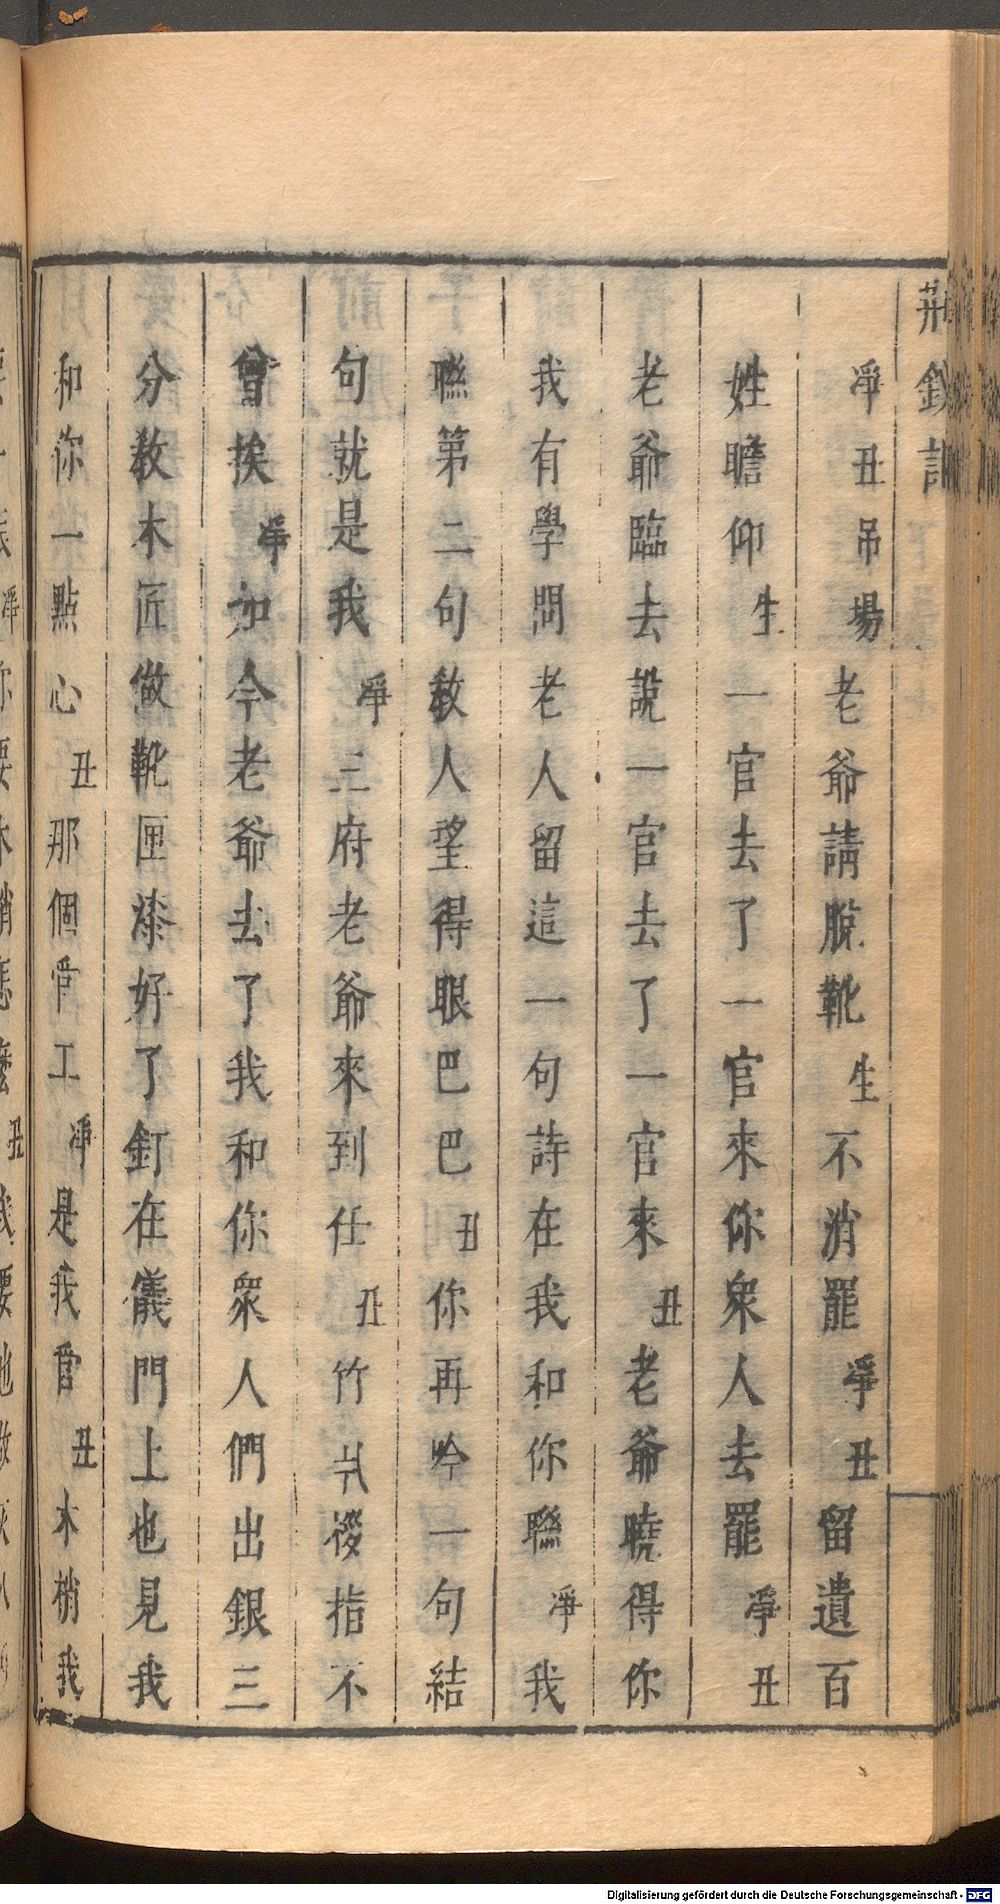 荆釵記
淨丑吊場老爺請脫靴生不消罷淨丑留遺百
姓瞻仰生一官去了一官來你衆人去罷淨丑
老爺臨去說一官去了一官來丑老爺曉得你
我有學問老人留這一句詩在我和你聯淨我
聮第二句教人望得眼巴巴丑你再吟一句結
句就是我淨三府老爺來到任丑竹爿拶指不
曾挨淨如今老爺去了我和你衆人們出銀三
分教木匠做靴匣漆好了釘在儀門上也見我
和你一點心丑那個管工淨是我管丑木梢我
Digitalisierung gefördert durch die Deutsche Forschungsgemeinschaft - DFG